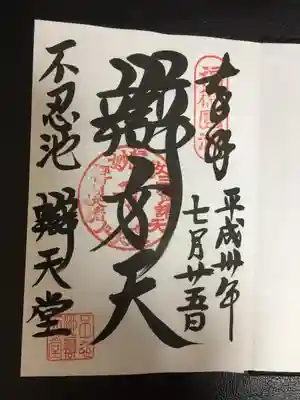 奉拝
平成卅年
七月廿五日
辯才天
不忍池 辯天堂